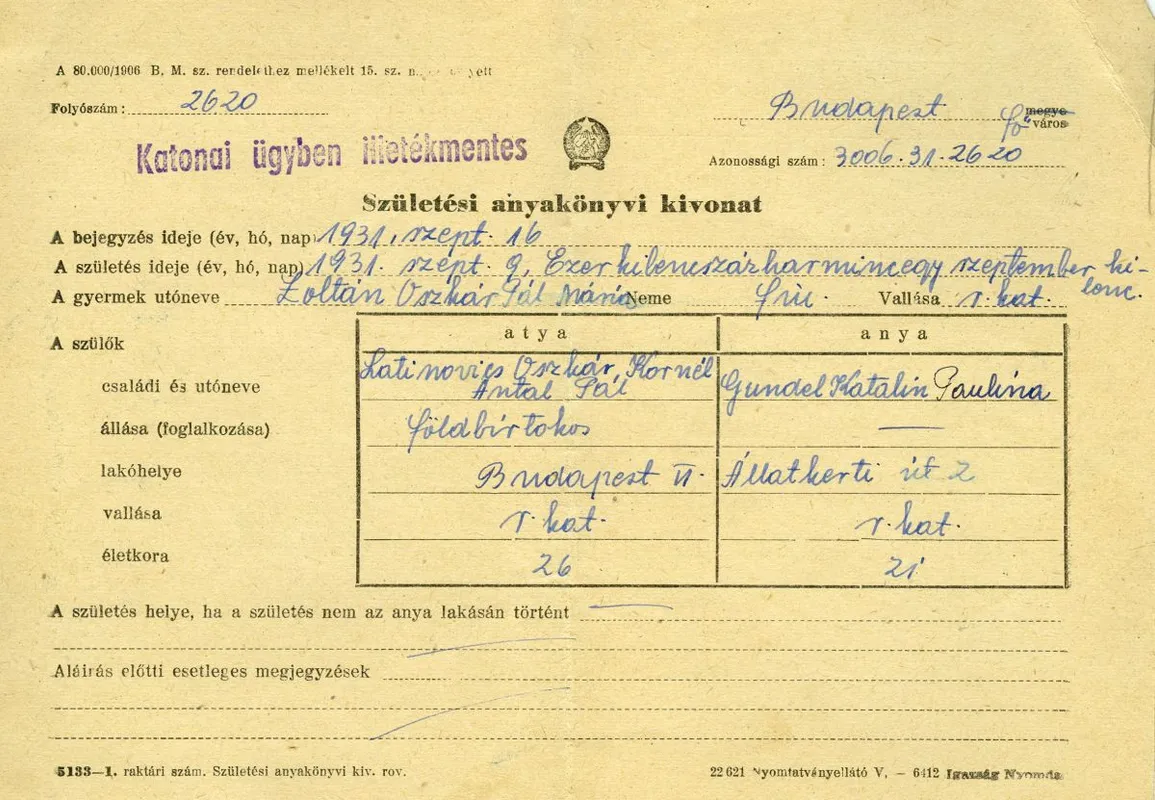 A 80.000/1906 B. M. sz. rendelethez mellékelt 15. sz.
Folyószám: 2620
Budapest megye fő város
Katonai ügyben illetékmentes
Azonossági szám: 3006.31.2620
Születési anyakönyvi kivonat
A bejegyzés ideje (év, hó, nap) 1931. szept. 16
A születés ideje (év, hó, nap) 1931. szept. 9, Ezerkilencszázharmincegy szeptember ki-
lenc.
A gyermek utóneve Zoltán Oszkár Pál Mária Neme fiú. Vallása r. kat.
atya anya
A szülők
családi és utóneve Latinovics Oszkár, Kornél Antal Pál Gundel Katalin Paulina
állása (foglalkozása) földbirtokos —
lakóhelye Budapest II. Állatkerti út 2
vallása r. kat. r. kat.
életkora 26 21
A születés helye, ha a születés nem az anya lakásán történt —
Aláírás előtti esetleges megjegyzések
5133—1. raktári szám. Születési anyakönyvi kiv. rov.
22 621 Nyomtatványellátó V. — 6412 Igazság Nyomda